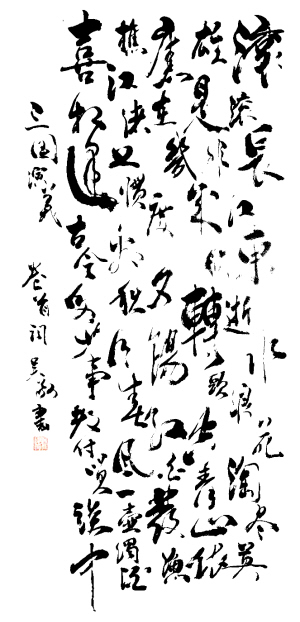 滾滾長江東逝水浪花淘盡英
雄是非成敗轉頭空青山依
舊在幾度夕陽紅白髮漁
樵江渚上慣看秋月春風一壺濁酒
喜相逢古今多少事都付笑談中
三國演義 卷首詞 吳 書